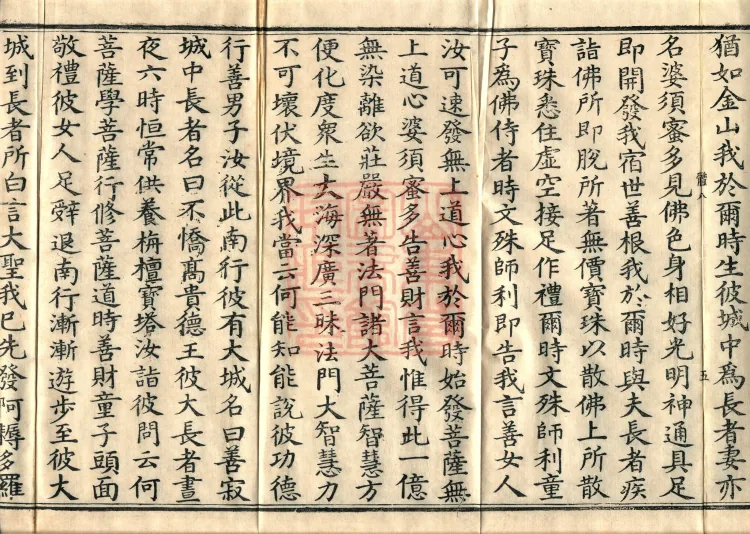 猶如金山我於爾時生彼城中為長者妻亦
名婆須蜜多見佛色身相好光明神通具足
即開發我宿世善根我於爾時與夫長者疾
詣佛所即脫所著無價寶珠以散佛上所散
寶珠悉住虛空接足作禮爾時文殊師利童
子為佛侍者時文殊師利即告我言善女人
汝可速發無上道心我於爾時始發菩薩無
上道心婆須蜜多告善財言我惟得此一億
無染離欲莊嚴無著法門諸大菩薩智慧方
便化度眾生大海深廣三昧法門大智慧力
不可壞伏境界我當云何能知能說彼功德
行善男子汝從此南行彼有大城名曰善寂
城中長者名曰不憍高貴德王彼大長者晝
夜六時恒常供養栴檀寶塔汝詣彼問云何
菩薩學菩薩行修菩薩道時善財童子頭面
敬禮彼女人足辭退南行漸漸遊步至彼大
城到長者所白言大聖我已先發阿耨多羅
五